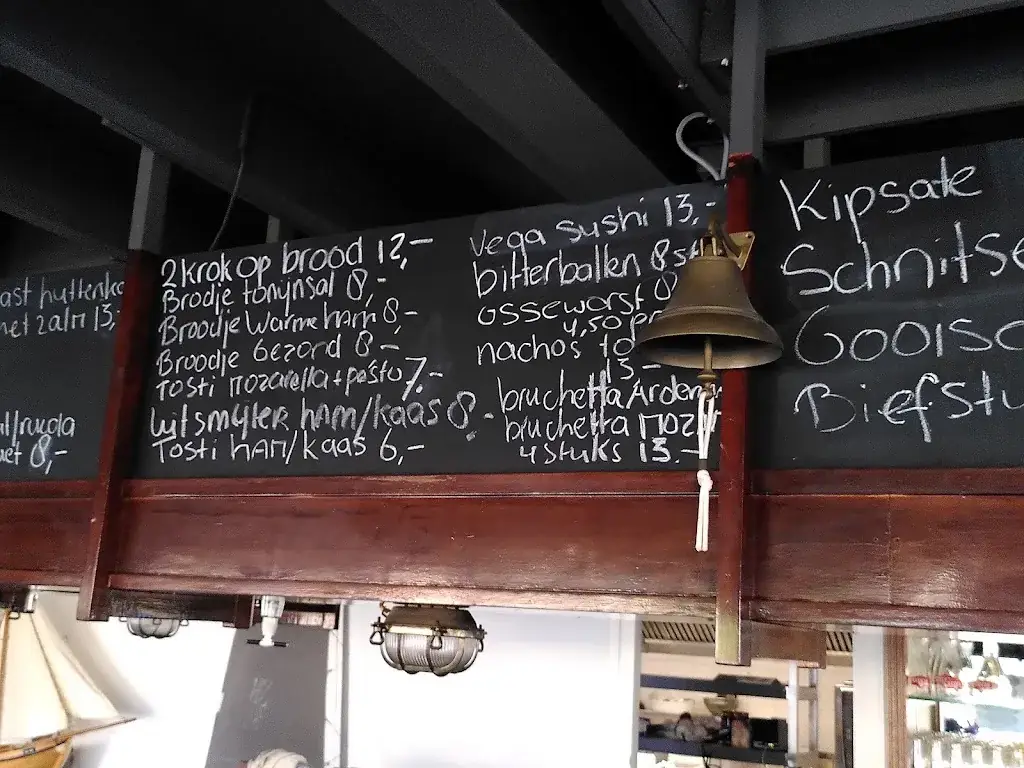 ast huttenka
met zalm 13,-
8,-
2 krok op brood 12,-
Brodje tonijnsal 8,-
Broodje Warme ham 8,-
Broodje Gezond 8-
Tosti mozarella + pesto 7.-
Uitsmijter ham/kaas 8,-
Tosti HAM/Kaas 6,-
Vega Sushi 13,-
bitterballen 8 st
osseworst 8
4,50
nachos to
13-
bruchetta Arden
bruchetta MOZ
4 stuks 13.-
Kipsate
Schnitse
Gooisc
Biefstu